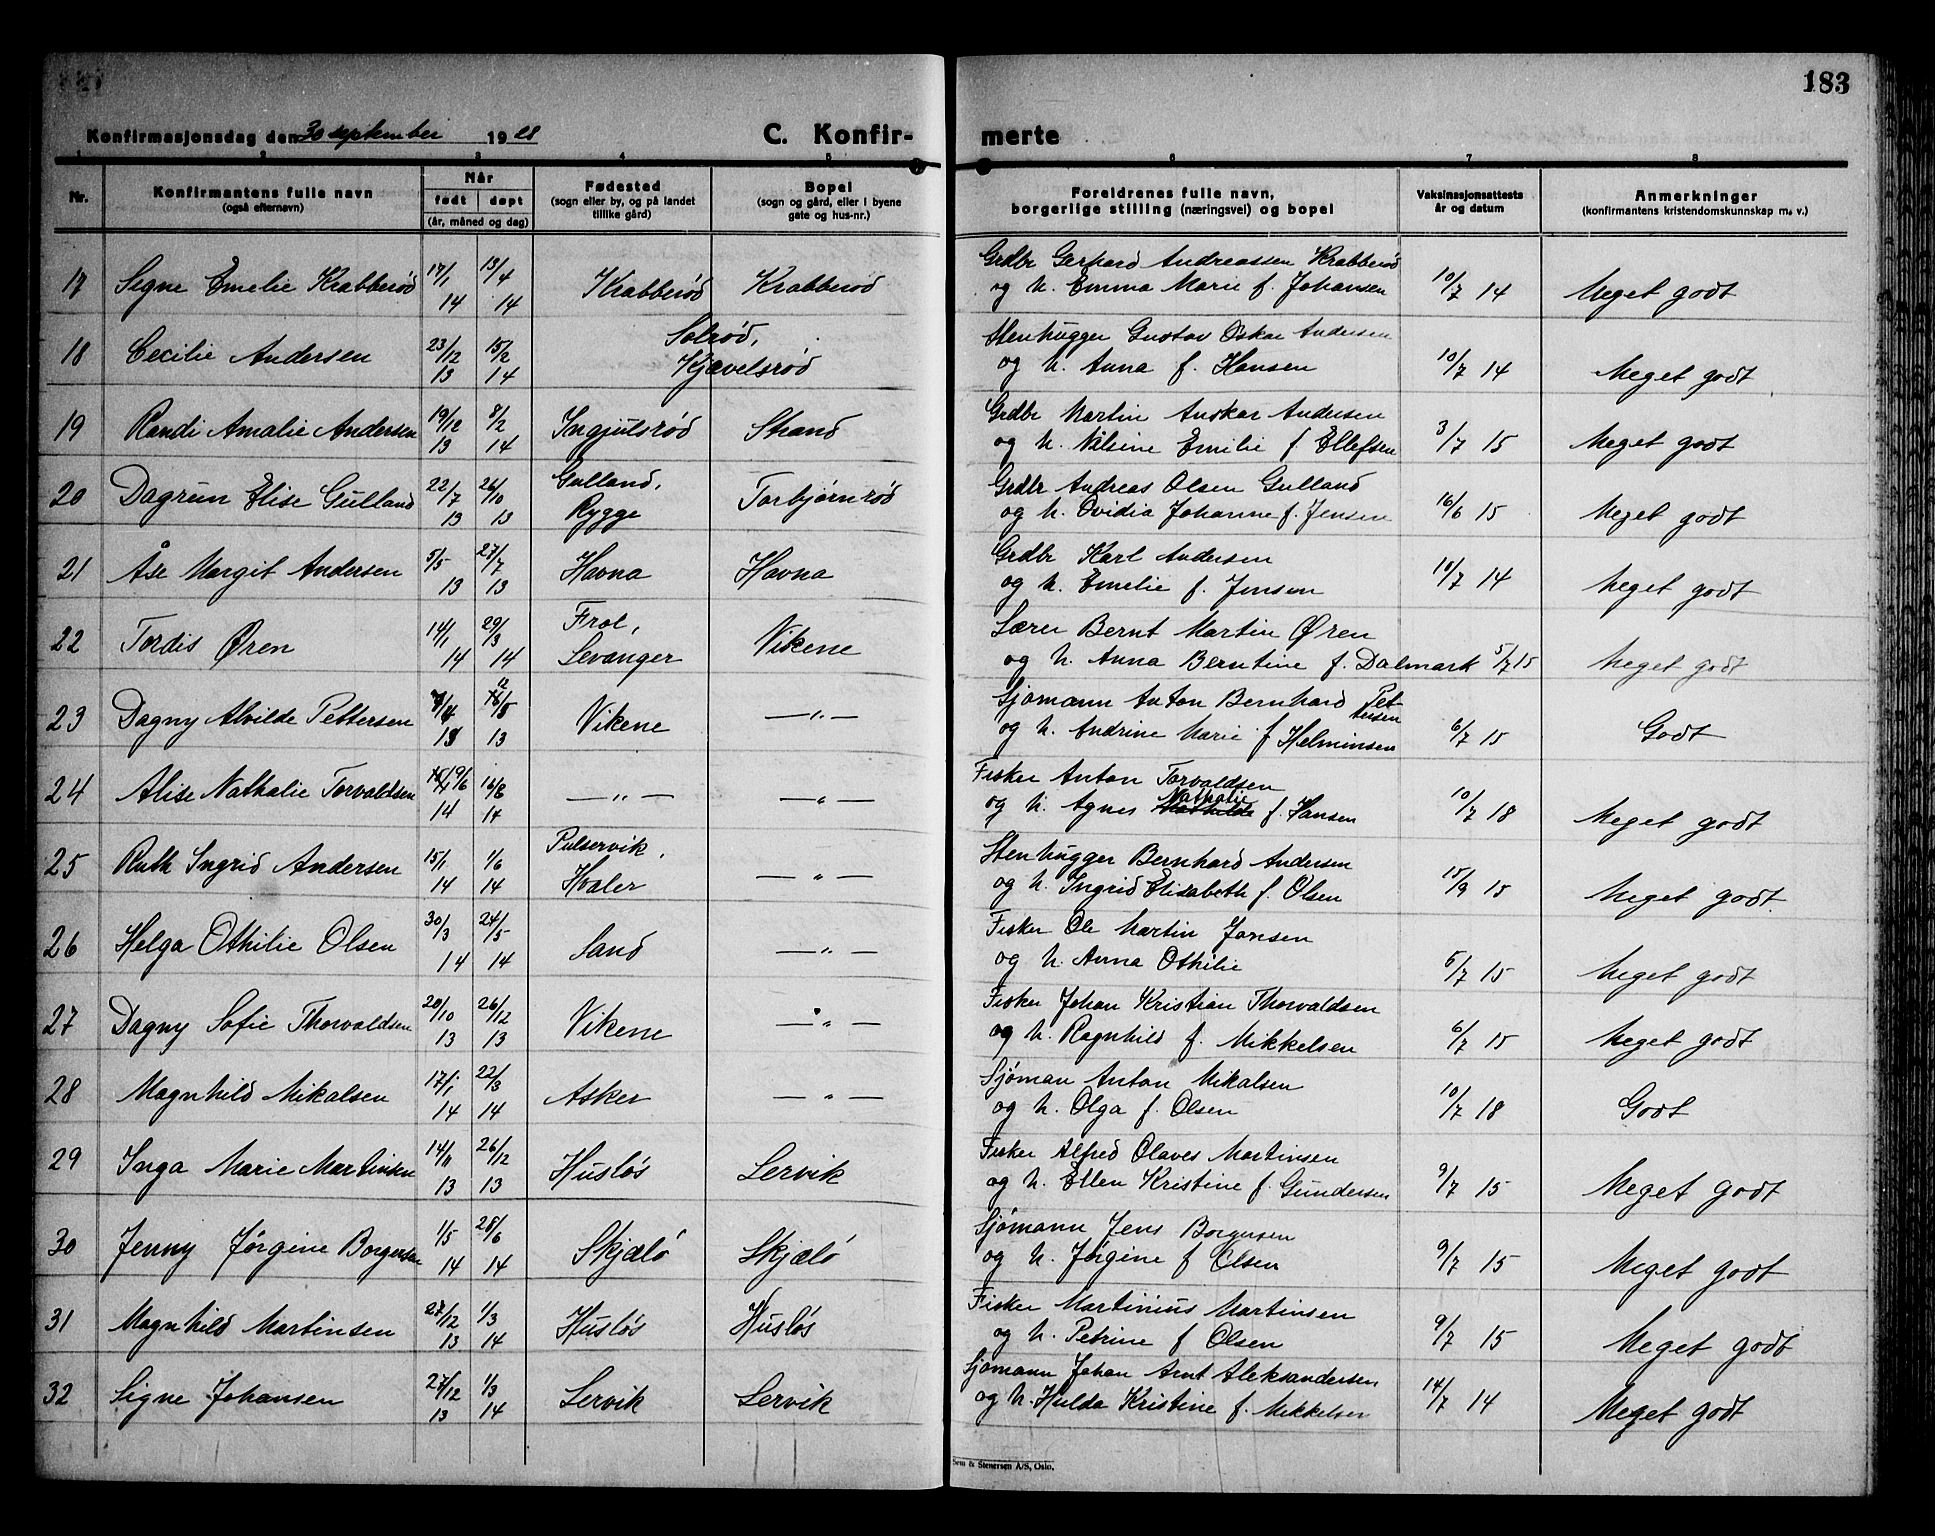 183
Konfirmasjonsdag den 30 september 1928
C. Konfir-
merte
1 2 3 4 5 6 7 8
Nr.
Konfirmantens fulle navn
(også efternavn)
Når
født
døpt
(år, måned og dag)
Fødested
(sogn eller by, og på landet
tillike gård)
Bopel
(sogn og gård, eller i byene
gate og hus-nr.)
Foreldrenes fulle navn,
borgerlige stilling (næringsvei) og bopel
Vaksinasjonsattests
år og datum
Anmerkninger
(konfirmantens kristendomskunnskap m. v.)
17 Signe Emelie Krabberød 17/1 14 13/4 14 Krabberød Krabberød
Grdbr Gerhard Andreassen Krabberød
og h. Emma Marie f. Johansen 10/7 14 Meget godt
18 Cecilie Andersen 23/12 13 15/2 14 Solrød,
Kjævelsrød
Stenhugger Gustav Oskar Andersen
og h. Anna f. Hansen 10/7 14 Meget godt
19 Randi Amalie Andersen 19/12 13 8/2 14 Ingjulsrød Strand
Grdbr Martin Anskar Andersen
og h. Nilsine Emilie f Ellefsen 3/7 15 Meget godt
20 Dagrun Elise Gulland 22/7 13 26/10 13 Gulland,
Rygge Torbjørnrød
Grdbr Andreas Olsen Gulland
og h. Ovidia Johanne f. Jensen 16/6 15 Meget godt
21 Åse Margit Andersen 5/5 13 27/7 13 Havna Havna
Grdbr Karl Andersen
og h. Emelie f. Jensen 10/7 14 Meget godt
22 Tordis Øren 14/1 14 29/3 14 Frol,
Levanger Vikene
Lærer Bernt Martin Øren
og h. Anna Berntine f. Dalmark 5/7 15 Meget godt
23 Dagny Alvilde Pettersen 13 13 Vikene —"—
Sjømann Anton Bernhard Pet-
tersen
og h. Andrine Marie f Helminsen 6/7 15 Godt
24 Alise Nathalie Torvaldsen 9/6 14 16/8 14 —"— —"—
Fisker Anton Torvaldsen
og h. Agnes Nathalie f. Hansen 10/7 18 Meget godt
25 Ruth Ingrid Andersen 15/1 14 1/6 14 Pulservik,
Hvaler —"—
Stenhugger Bernhard Andersen
og h. Ingrid Elisabeth f. Olsen 15/9 15 Meget godt.
26 Helga Othilie Olsen 30/3 14 24/5 14 Sand —"—
Fisker Ole Martin Jansen
og h. Anna Othilie 5/7 15 Meget godt
27 Dagny Sofie Thorvaldsen 20/10 13 26/12 13 Vikene —"—
Fisker Johan Kristian Thorvaldsen
og h. Ragnhild f. Mikkelsen 6/7 15 Meget godt
28 Magnhild Mikalsen 17/1 14 22/3 14 Asker —"—
Sjøman Anton Mikalsen
og h. Olga f. Olsen 10/7 18 Godt
29 Inga Marie Martinsen 14/11 13 26/12 13 Husløs Lervik
Fisker Alfred Olaves Martinsen
og h. Ellen Kristine f. Gundersen 9/7 15 Meget godt
30 Jenny Jørgine Borgersen 1/5 14 28/6 14 Skjælø Skjælø
Sjømann Jens Borgersen
og h. Jørgine f Olsen 9/7 15 Meget godt
31 Magnhild Martinsen 27/12 13 1/3 14 Husløs Husløs
Fisker Martinius Martinsen
og h. Petrine f Olsen 9/7 15 Meget godt
32 Signe Johansen 27/12 13 1/3 14 Lervik Lervik
Sjømann Johan Arnt Aleksandersen
og h. Hulda Kristine f. Mikkelsen 14/7 14 Meget godt
Sem & Stenersen A/S, Oslo.